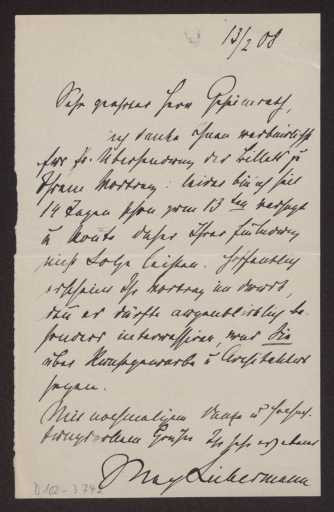 13/2 08
Sehr geehrter Herr Geheimrath,
ich danke Ihnen verbindlichst
für die Übersendung des Billets zu
Ihrem Vortrag: leider bin ich seit
14 Tagen schon zum 13ten versagt
u konnte daher Ihrer Einladung
nicht Folge leisten. Hoffentlich
erscheint Ihr Vortrag im Druck,
denn er dürfte augenblicklich be-
sonders interessiren, was Sie
über Kunstgewerbe u Architektur
sagen.
Mit nochmaligem Danke u hochach-
tungsvollem Gruße Ihr sehr ergebener
Max Liebermann
D 102-3.742